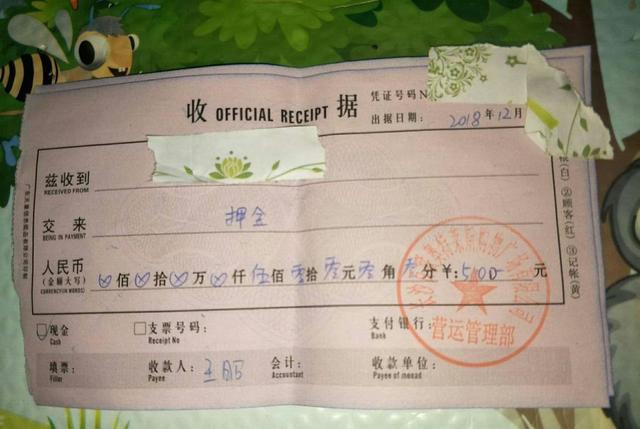 收 OFFICIAL RECEIPT 据
凭证号码N
出据日期： 2018 年 12 月
兹收到
RECEIVED FROM
交来 押金
BEING IN PAYMENT
人民币 佰 拾 万 仟 伍 佰 零 拾 零 元 零 角 零 分 ¥: 500 元
(金额大写)
CURRENCY(IN WORDS)
现金 支票号码： 支付银行：
Cash Receipt No Bank:
营运管理部
填票： 收款人： 会计： 收款单位：
Filler Payee Accountant Payee of monad
②顾客(红) ③记帐(黄)